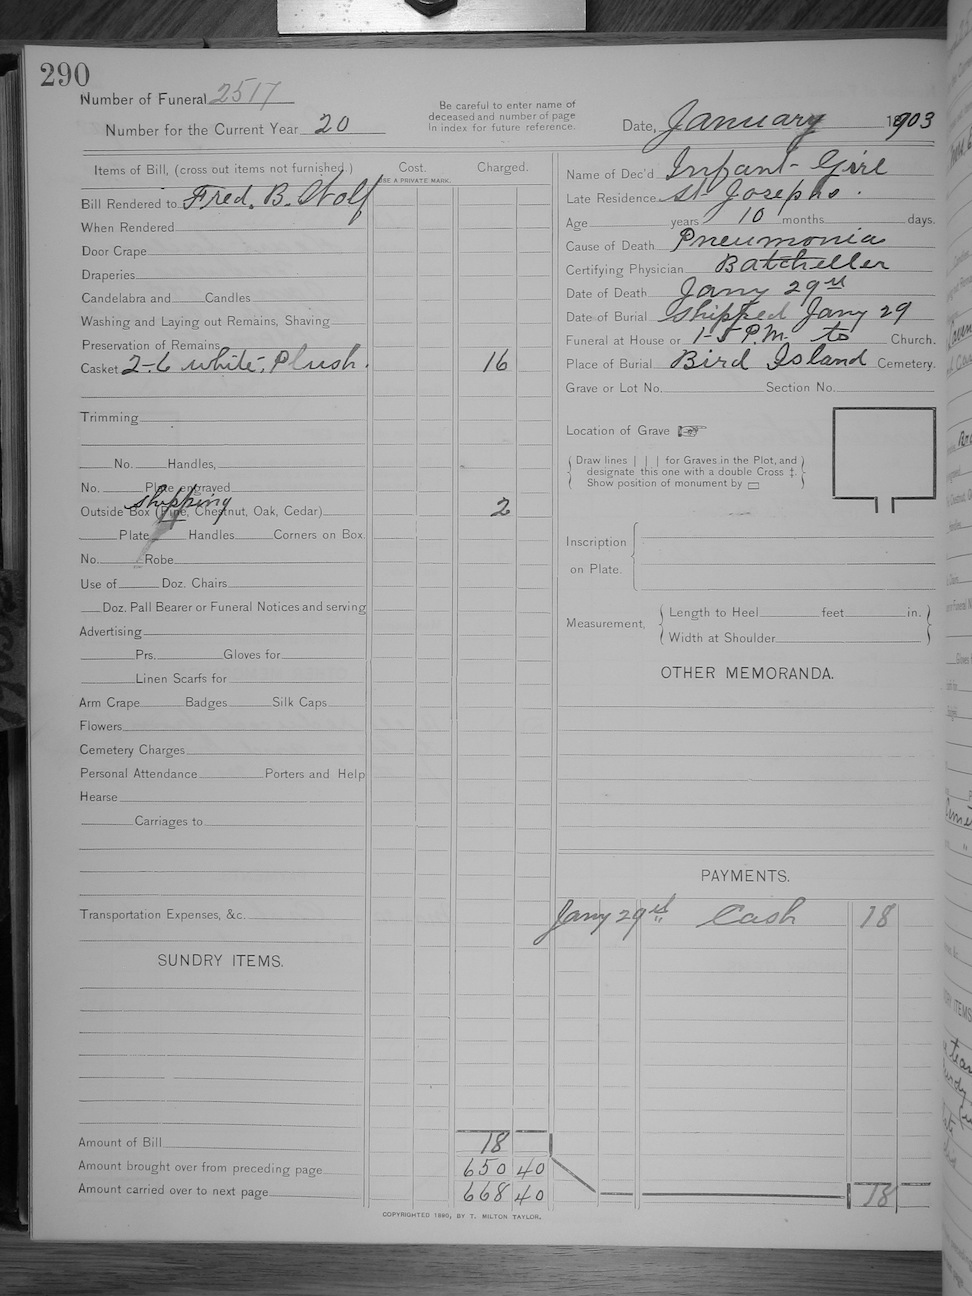 290
Number of Funeral 2517
Number for the Current Year 20
Be careful to enter name of
deceased and number of page
in index for future reference.
Date, January 1903
Items of Bill, (cross out items not furnished.) Cost. Charged.
USE A PRIVATE MARK.
Bill Rendered to Fred. B. Wolf
When Rendered
Door Crape
Draperies
Candelabra and Candles
Washing and Laying out Remains, Shaving
Preservation of Remains
Casket 2-6 white, Plush. 16
Trimming
No. Handles,
No. Plate engraved
shipping
Outside Box (Pine, Chestnut, Oak, Cedar) 2
Plate Handles Corners on Box.
No. Robe
Use of Doz. Chairs
Doz. Pall Bearer or Funeral Notices and serving
Advertising
Prs. Gloves for
Linen Scarfs for
Arm Crape Badges Silk Caps
Flowers
Cemetery Charges
Personal Attendance Porters and Help
Hearse
Carriages to
Transportation Expenses, &c.
SUNDRY ITEMS.
Amount of Bill 18
Amount brought over from preceding page 650 40
Amount carried over to next page 668 40
COPYRIGHTED 1890, BY T. MILTON TAYLOR.
Name of Dec'd Infant- Girl
Late Residence St Josephs.
Age years 10 months days.
Cause of Death Pneumonia
Certifying Physician Batcheller
Date of Death Jany 29
Date of Burial Shipped Jany 29
Funeral at House or 1-5 P.M. to Church.
Place of Burial Bird Island Cemetery.
Grave or Lot No. Section No.
Location of Grave
Draw lines | | | for Graves in the Plot, and
designate this one with a double Cross ‡.
Show position of monument by ▭
Inscription
on Plate.
Measurement, Length to Heel feet in.
Width at Shoulder
OTHER MEMORANDA.
PAYMENTS.
Jany 29 Cash 18
18